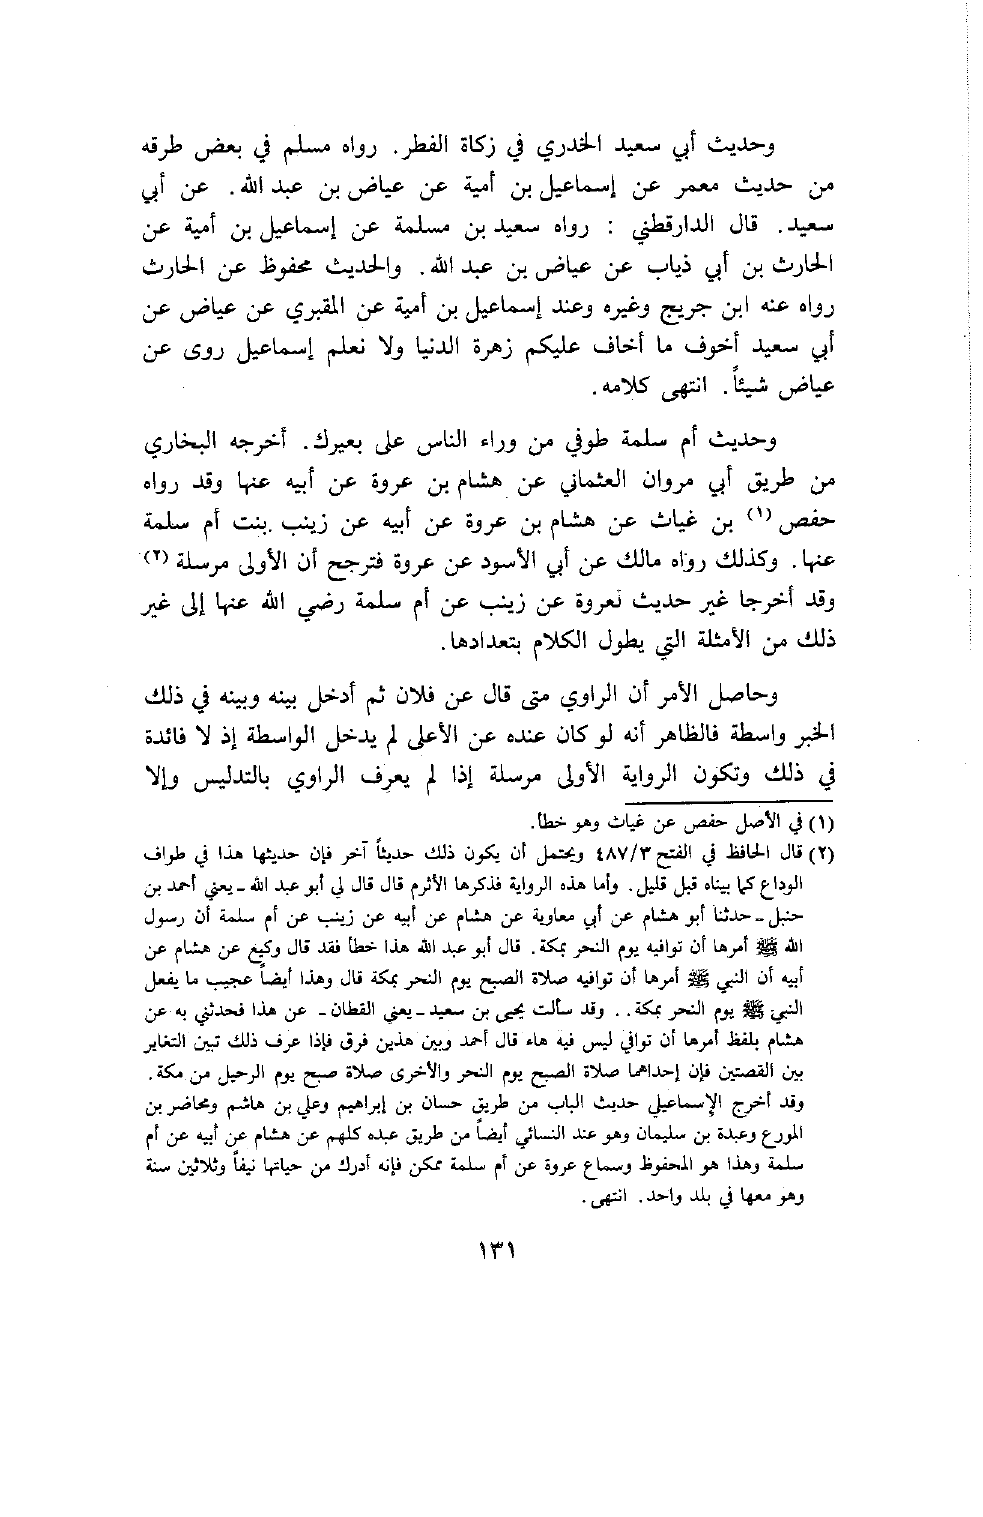 وحديث أبي سعيد الخدري في زكاة الفطر. رواه مسلم في بعض طرقه
من حديث معمر عن إسماعيل بن أمية عن عياض بن عبد الله. عن أبي
سعيد. قال الدارقطني : رواه سعيد بن مسلمة عن إسماعيل بن أمية عن
الحارث بن أبي ذياب عن عياض بن عبد الله. والحديث محفوظ عن الحارث
رواه عنه ابن جريج وغيره وعند إسماعيل بن أمية عن المقبري عن عياض عن
أبي سعيد أخوف ما أخاف عليكم زهرة الدنيا ولا نعلم إسماعيل روى عن
عياض شيئاً. انتهى كلامه.
وحديث أم سلمة طوفي من وراء الناس على بعيرك. أخرجه البخاري
من طريق أبي مروان العثماني عن هشام بن عروة عن أبيه عنها وقد رواه
حفص (١) بن غياث عن هشام بن عروة عن أبيه عن زينب بنت أم سلمة
عنها. وكذلك رواه مالك عن أبي الأسود عن عروة فترجح أن الأولى مرسلة (٢)
وقد أخرجا غير حديث لعروة عن زينب عن أم سلمة رضي الله عنها إلى غير
ذلك من الأمثلة التي يطول الكلام بتعدادها.
وحاصل الأمر أن الراوي متى قال عن فلان ثم أدخل بينه وبينه في ذلك
الخبر واسطة فالظاهر أنه لو كان عنده عن الأعلى لم يدخل الواسطة إذ لا فائدة
في ذلك وتكون الرواية الأولى مرسلة إذا لم يعرف الراوي بالتدليس وإلا
(١) في الأصل حفص عن غياث وهو خطأ.
(٢) قال الحافظ في الفتح ٤٨٧/٣ ويحتمل أن يكون ذلك حديثاً آخر فإن حديثها هذا في طواف
الوداع كما بيناه قبل قليل. وأما هذه الرواية فذكرها الأثرم قال قال لي أبو عبد الله ـ يعني أحمد بن
حنبل ـ حدثنا أبو هشام عن أبي معاوية عن هشام عن أبيه عن زينب عن أم سلمة أن رسول
الله ﷺ أمرها أن توافيه يوم النحر بمكة. قال أبو عبد الله هذا خطأ فقد قال وكيع عن هشام عن
أبيه أن النبي ﷺ أمرها أن توافيه صلاة الصبح يوم النحر بمكة قال وهذا أيضاً عجيب ما يفعل
النبي ﷺ يوم النحر بمكة.. وقد سألت يحيى بن سعيد ـ يعني القطان ـ عن هذا فحدثني به عن
هشام بلفظ أمرها أن توافي ليس فيه هاء قال أحمد وبين هذين فرق فإذا عرف ذلك تبين التغاير
بين القصتين فإن إحداهما صلاة الصبح يوم النحر والأخرى صلاة صبح يوم الرحيل من مكة.
وقد أخرج الإسماعيلي حديث الباب من طريق حسان بن إبراهيم وعلي بن هاشم ومحاضر بن
المورع وعبدة بن سليمان وهو عند النسائي أيضاً من طريق عبده كلهم عن هشام عن أبيه عن أم
سلمة وهذا هو المحفوظ وسماع عروة عن أم سلمة ممكن فإنه أدرك من حياتها نيفاً وثلاثين سنة
وهو معها في بلد واحد. انتهى.
١٣١